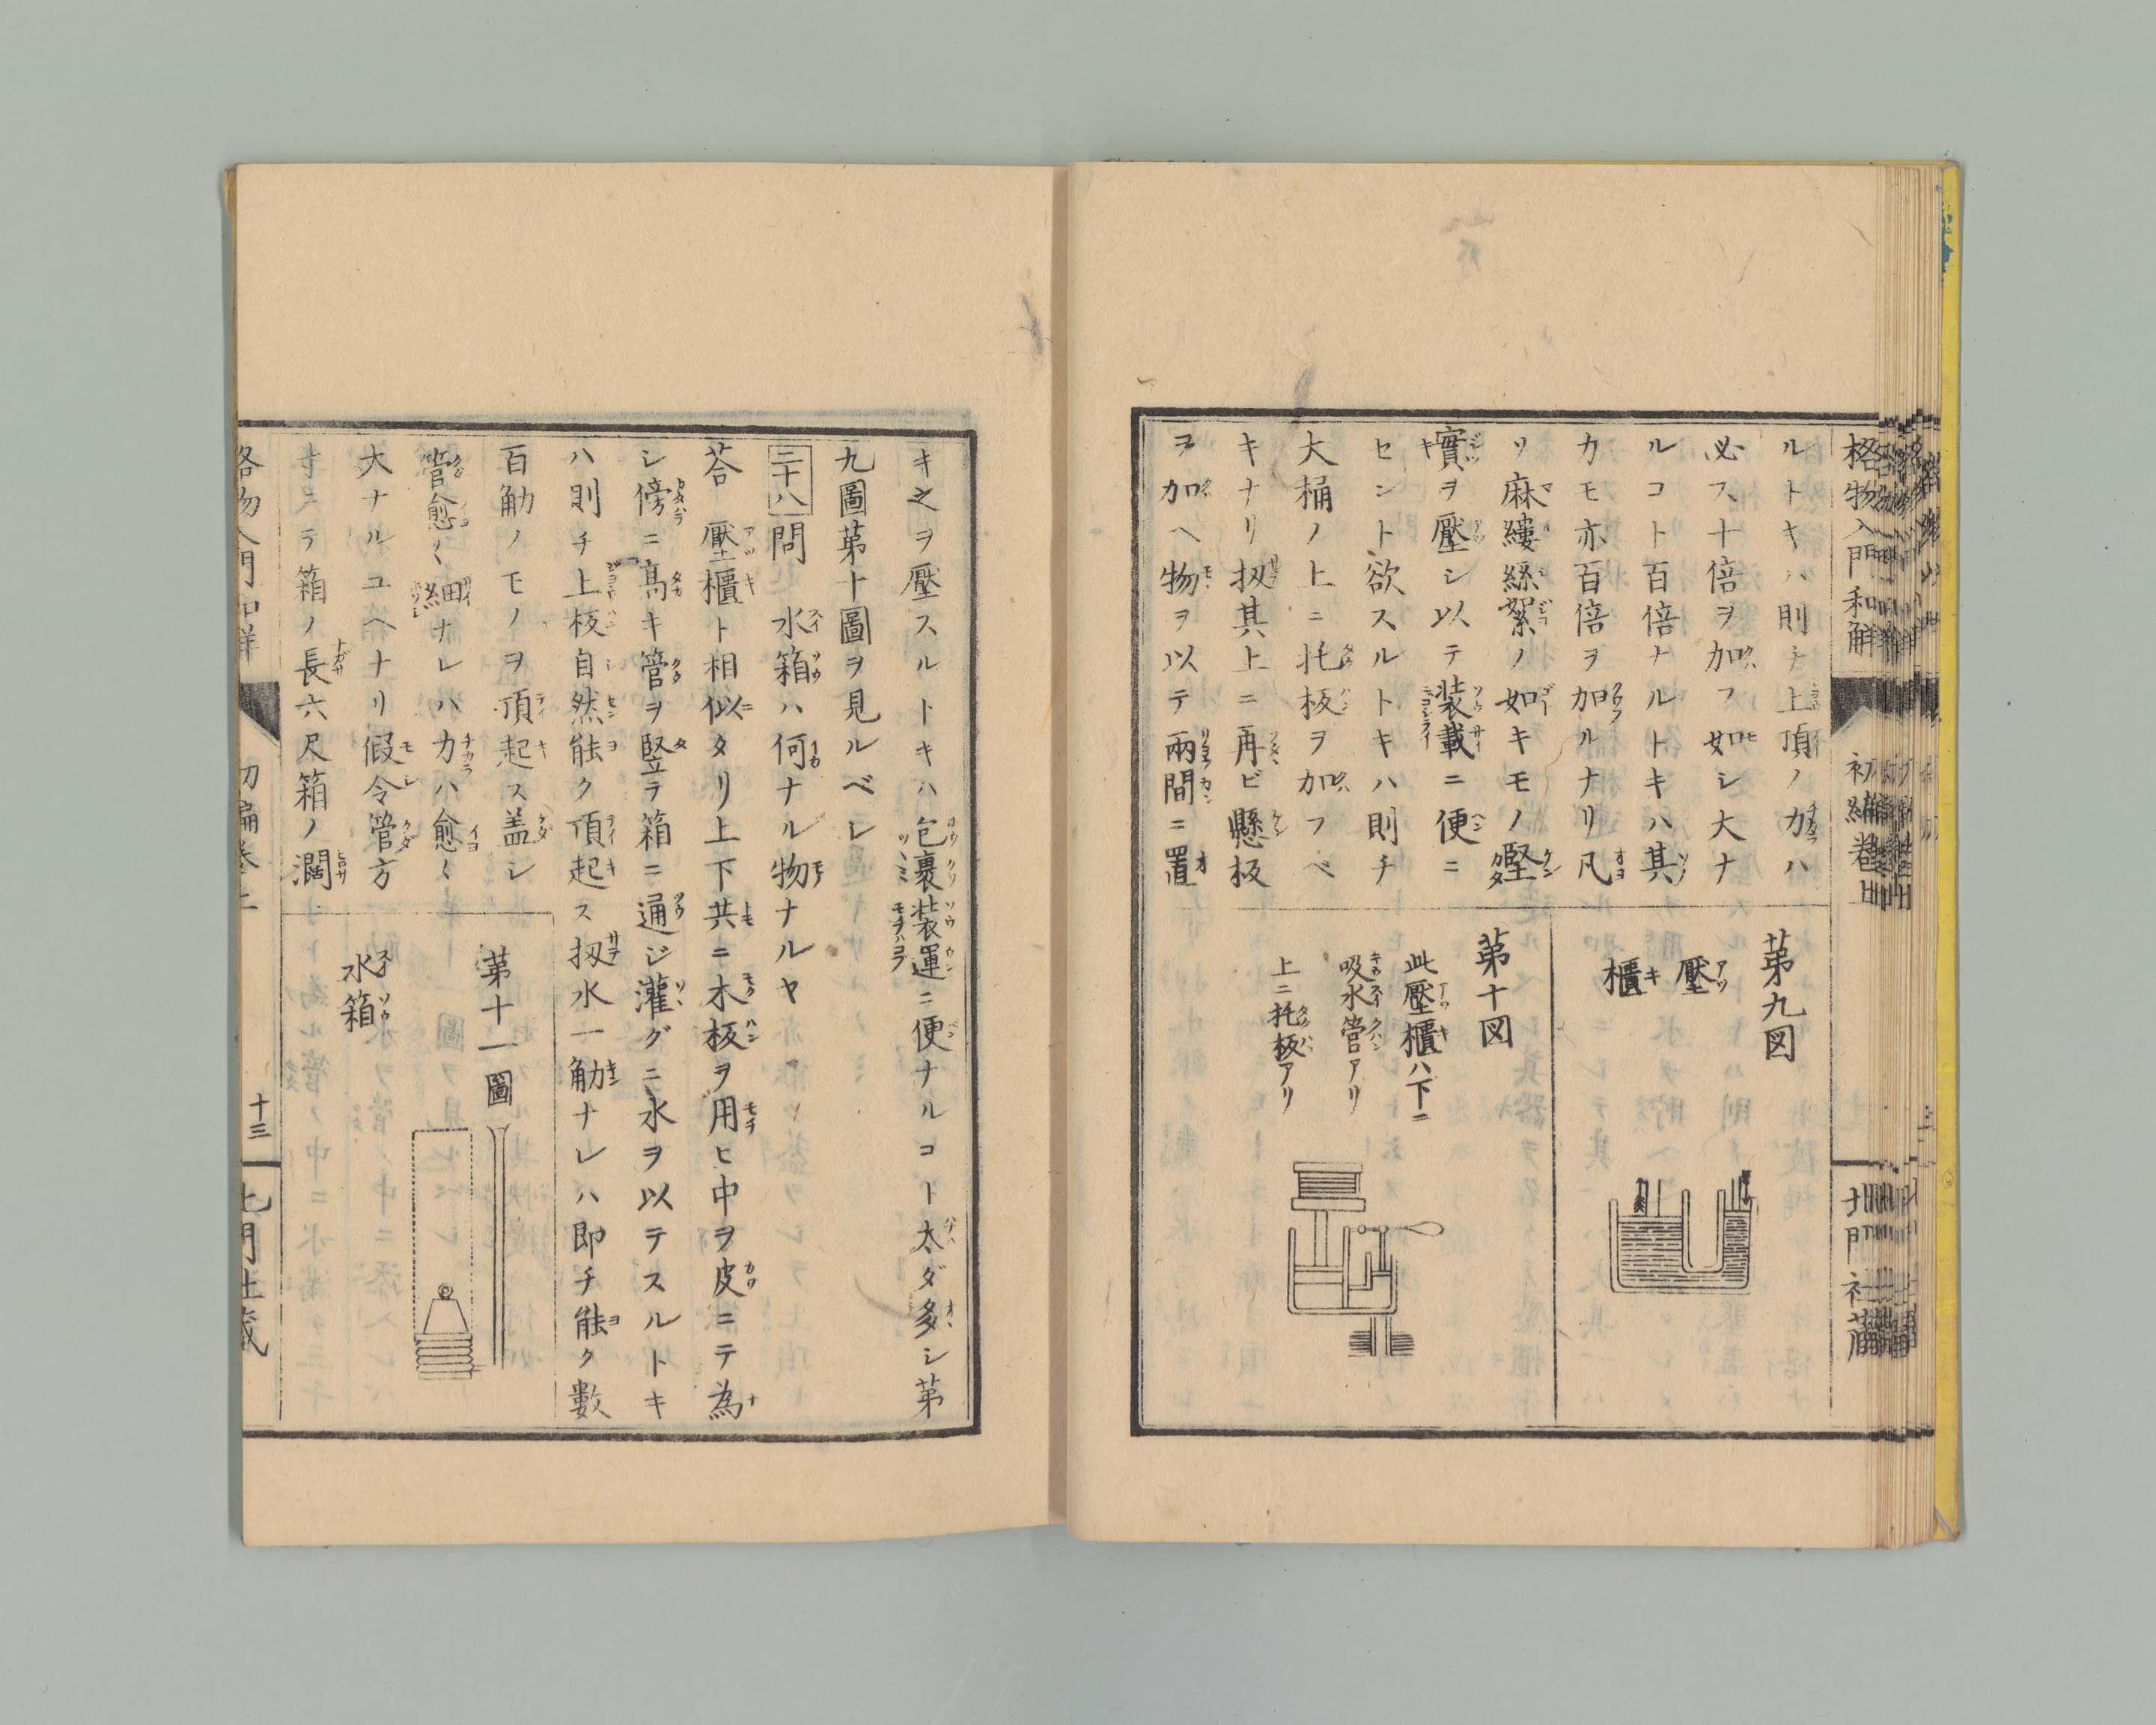 格物入門和解 初編巻上 北門社蔵
ルトキハ則チ上頂ノ力ハ
必ス十倍ヲ加フ如シ大ナ
ルコト百倍ナルトキハ其
力モ亦百倍ヲ加ルナリ凡
ソ麻縷絲絮ノ如キモノ堅
實ヲ壓シ以テ装載ニ便ニ
セント欲スルトキハ則チ
大桶ノ上ニ托板ヲ加フベ
キナリ扨其上ニ再ビ懸板
ヲ加ヘ物ヲ以テ兩間ニ置
第九図
壓櫃
第十図
此壓櫃ハ下ニ
吸水管アリ
上ニ托板アリ
キ之ヲ壓スルトキハ包裹装運ニ便ナルコト太ダ多シ第
九圖第十圖ヲ見ルベシ
三十八問 水箱ハ何ナル物ナルヤ
荅 壓櫃ト相似タリ上下共ニ木板ヲ用ヒ中ヲ皮ニテ為
シ傍ニ髙キ管ヲ竪テ箱ニ通ジ灌グニ水ヲ以テスルトキ
ハ則チ上板自然能ク頂起ス扨水一觔ナレハ即チ能ク數
百觔ノモノヲ頂起ス盖シ
管愈〱細ナレハ力ハ愈〱
大ナルユヘナリ假令管方
寸ニテ箱ノ長六尺箱ノ濶
第十一圖
水箱
格物入門和解 初編巻上 十三 北門社蔵